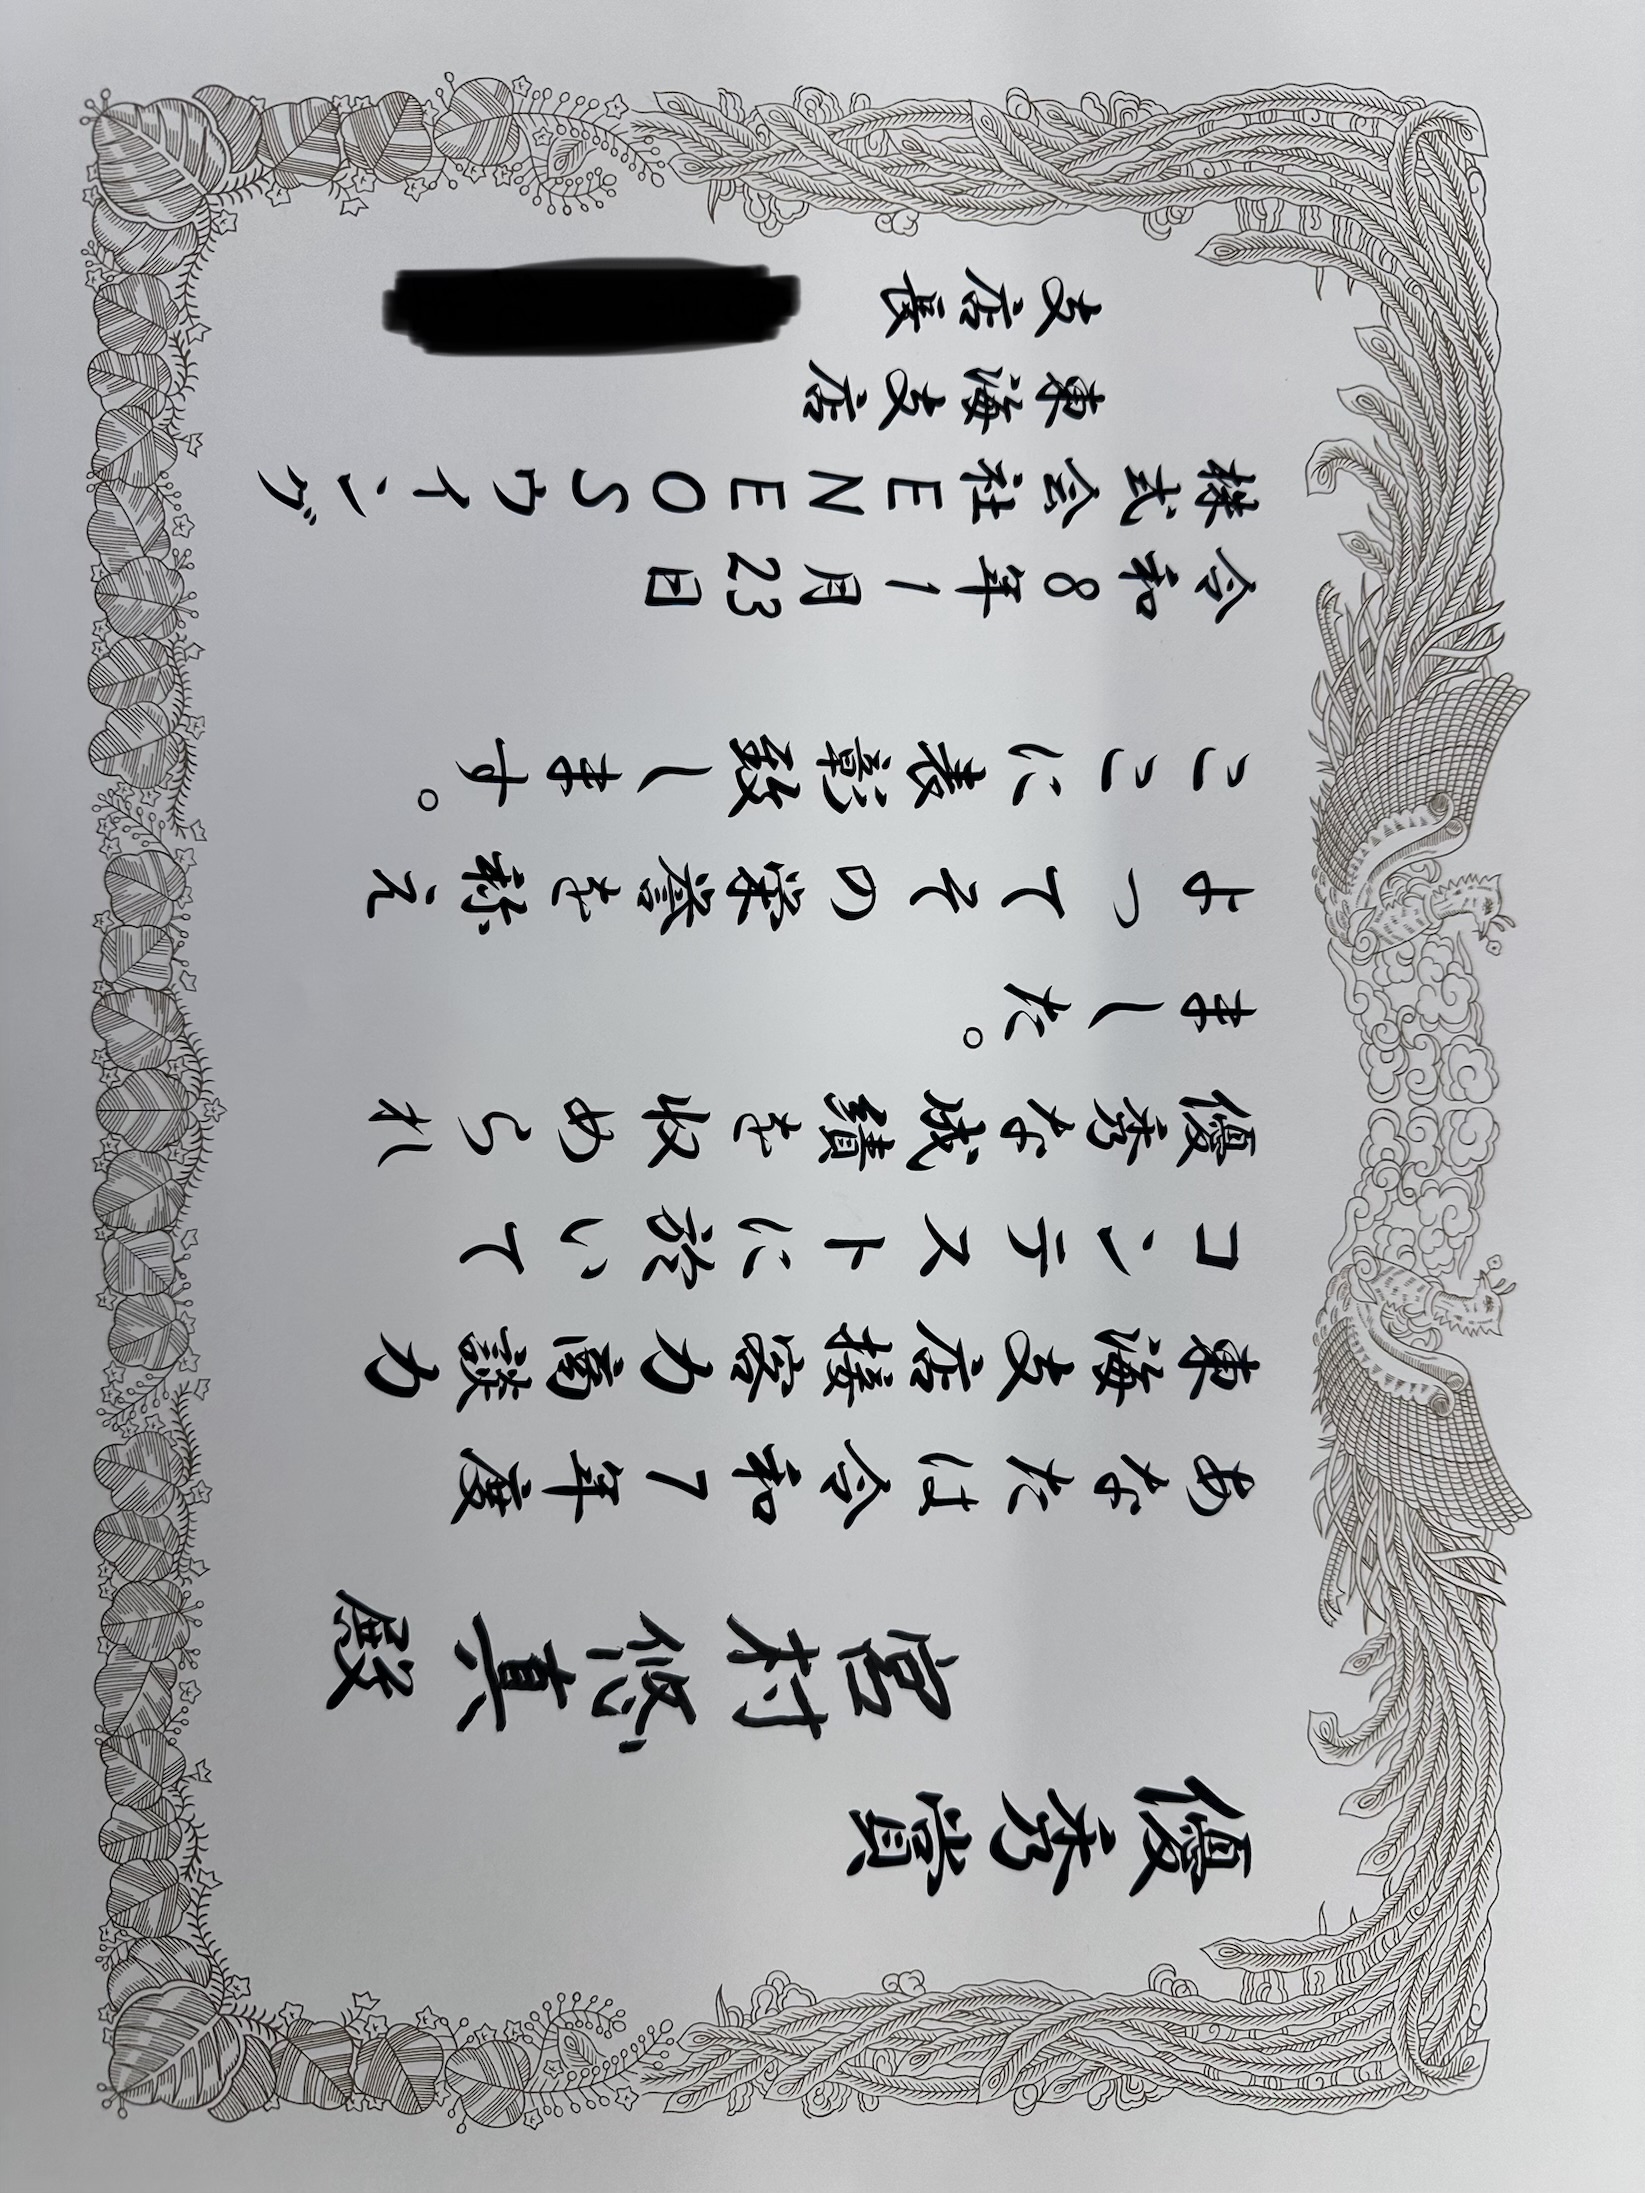 優秀賞
宮村悠真殿
あなたは令和7年度
東海支店接客力商談力
コンテストに於いて
優秀な成績を収められ
ました。
よってその栄誉を称え
ここに表彰致します。
令和8年1月23日
株式会社ENEOSウイング
東海支店
支店長